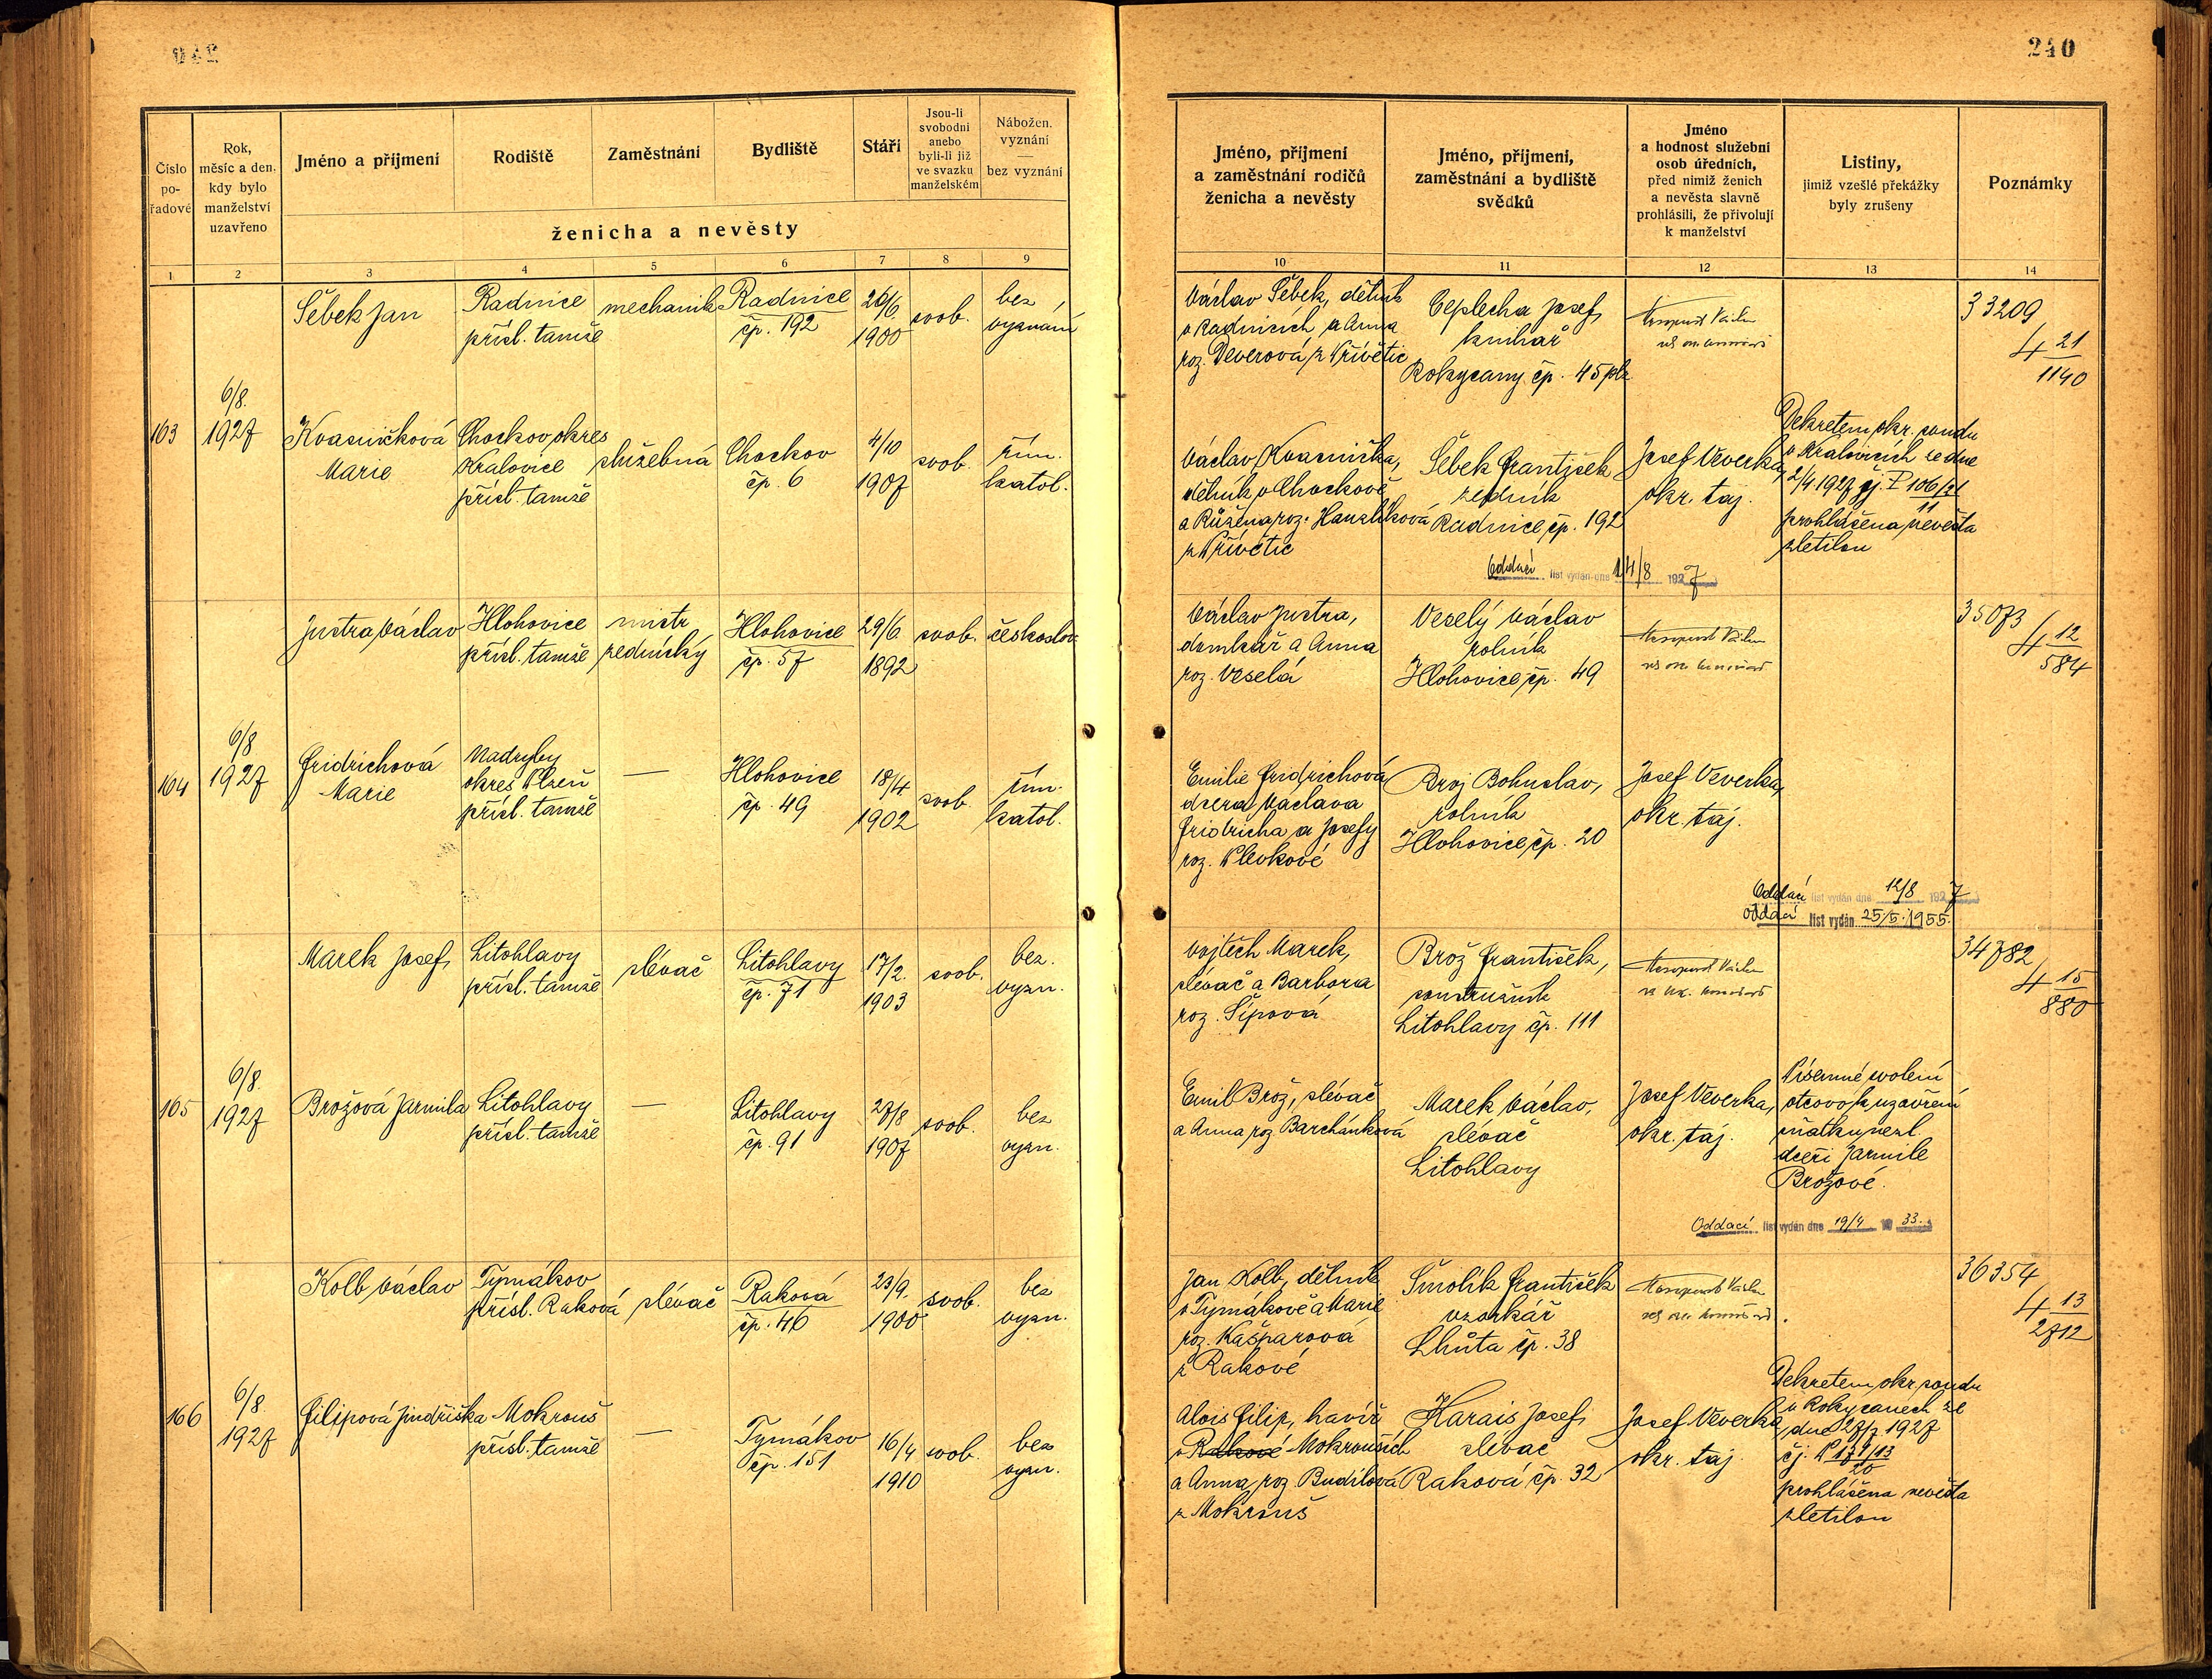 240
Číslo
po-
řadové
Rok,
měsíc a den,
kdy bylo
manželství
uzavřeno
Jméno a příjmení
Rodiště
Zaměstnání
Bydliště
Stáří
Jsou-li
svobodni
anebo
byli-li již
ve svazku
manželském
Nábožen.
vyznání
—
bez vyznání
ženicha a nevěsty
Jméno, příjmení
a zaměstnání rodičů
ženicha a nevěsty
Jméno, příjmení,
zaměstnání a bydliště
svědků
Jméno
a hodnost služební
osob úředních,
před nimiž ženich
a nevěsta slavně
prohlásili, že přivolují
k manželství
Listiny,
jimiž vzešlé překážky
byly zrušeny
Poznámky
1 2 3 4 5 6 7 8 9
10 11 12 13 14
Šebek Jan
Radnice
přísl. tamže
mechanik
Radnice
čp. 192
26/6.
1900
svob.
bez
vyznání
Václav Šebek, dělník
v Radnicích a Anna
roz. Deverová z Křívětic
Ceplecha Josef,
knihař
Rokycany čp. 45
Václav
33209
4 21
1140
163
6/8.
1927
Kvasničková
Marie
Chockov, okres
Kralovice
přísl. tamže
služebná
Chockov
čp. 6
4/10
1907
svob.
řím.
katol.
Václav Kvasnička,
dělník v Chockově
a Růžena roz. Hanzlíková
z Křívětic
Šebek František
zedník
Radnice, čp. 192
Josef Veverka,
okr. taj.
Dekretem okr. soudu
v Kralovicích ze dne
2/4 1927 čj. P 106/21
11
prohlášena nevěsta
zletilou
Oddací list vydán dne 14/8 1927
Justra Václav
Hlohovice
přísl. tamže
mistr
zednický
Hlohovice
čp. 57
29/6
1892
svob.
českoslov.
Václav Justra,
domkář a Anna
roz. Veselá
Veselý Václav
rolník
Hlohovice, čp. 49
Václav
35073
4 12
584
164
6/8
1927
Fridrichová
Marie
Nadryby
okres Plzeň
přísl. tamže
—
Hlohovice
čp. 49
18/4
1902
svob.
řím.
katol.
Emilie Fridrichová
dcera Václava
Fridricha a Josefy
roz. Plevkové
Broj Bohuslav,
rolník
Hlohovice, čp. 20
Josef Veverka,
okr. taj.
Oddací list vydán dne 12/8 1927
Oddací list vydán 25/5. 1955.
Marek Josef,
Litohlavy
přísl. tamže
slévač
Litohlavy
čp. 71
17/2.
1903
svob.
bez.
vyzn.
Vojtěch Marek,
slévač a Barbora
roz. Šípová
Brož František,
soustružník
Litohlavy čp. 111
Václav
34782
4 15
880
165
6/8.
1927
Brožová Jarmila
Litohlavy
přísl. tamže
—
Litohlavy
čp. 91
27/8
1907
svob.
bez
vyzn.
Emil Brož, slévač
a Anna roz. Barchánková
Marek Václav,
slévač
Litohlavy
Josef Veverka,
okr. taj.
Písemné svolení
otcovo k uzavření
sňatku nezl.
dceři Jarmile
Brožové.
Oddací list vydán dne 19/4 1933.
Kolb Václav
Tymákov
přísl. Raková
slévač
Raková
čp. 46
23/9.
1900
svob.
bez
vyzn.
Jan Kolb, dělník
v Tymákově a Marie
roz. Kašparová
z Rakové
Smolík František
vzorkář
Lhůta čp. 38
Václav
36354
4 13
2712
166
6/8.
1927
Filipová Jindřiška
Mokrouš
přísl. tamže
—
Tymákov
čp. 151
16/4
1910
svob.
bez
vyzn.
Alois Filip, havíř
v Rakové Mokrouších
a Anna, roz. Budilová
z Mokrouš
Harais Josef,
slévač
Raková čp. 32
Josef Veverka,
okr. taj.
Dekretem okr. soudu
v Rokycanech ze
dne 27/7 1927
čj. P 171/13
20
prohlášena nevěsta
zletilou